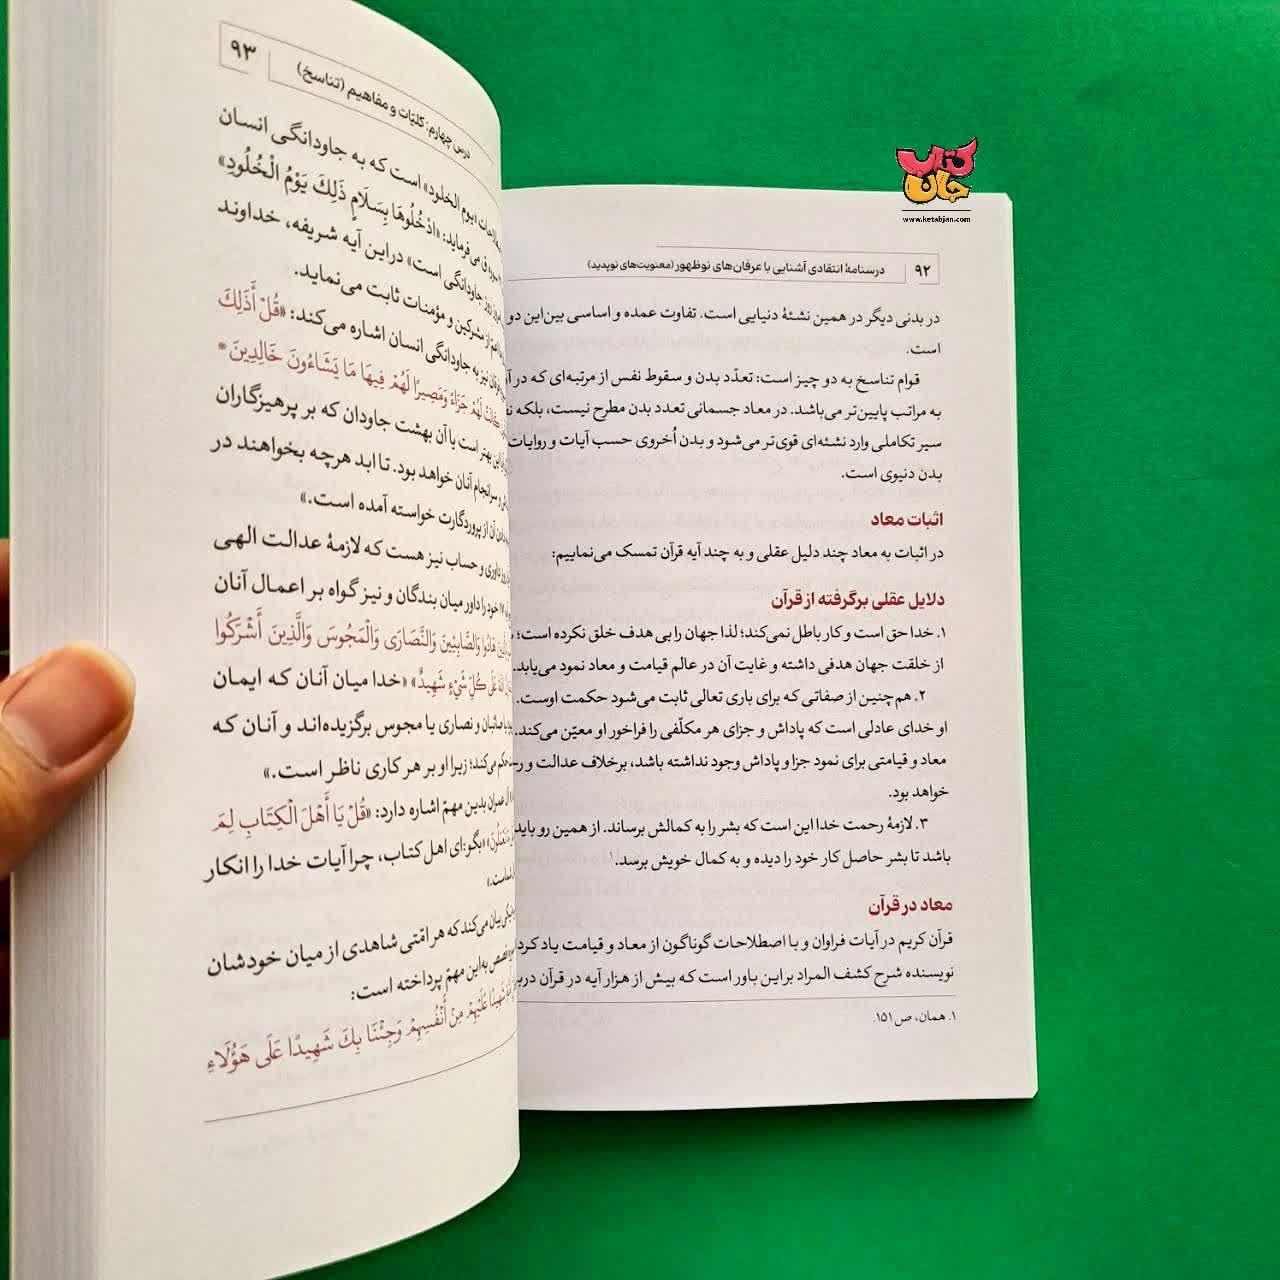 کتاب جان
www.ketabjan.com
۹۲
درسنامهٔ انتقادی آشنایی با عرفان‌های نوظهور (معنویت‌های نوپدید)
در بدنی دیگر در همین نشئهٔ دنیایی است. تفاوت عمده و اساسی بین این دو
است.
قوام تناسخ به دو چیز است: تعدّد بدن و سقوط نفس از مرتبه‌ای که در
به مراتب پایین‌تر می‌باشد. در معاد جسمانی تعدد بدن مطرح نیست، بلکه
سیر تکاملی وارد نشئه‌ای قوی‌تر می‌شود و بدن اُخروی حسب آیات و روایات
بدن دنیوی است.
اثبات معاد
در اثبات به معاد چند دلیل عقلی و به چند آیه قرآن تمسک می‌نماییم:
دلایل عقلی برگرفته از قرآن
۱. خدا حق است و کار باطل نمی‌کند؛ لذا جهان را بی هدف خلق نکرده است؛
از خلقت جهان هدفی داشته و غایت آن در عالم قیامت و معاد نمود می‌یابد.
۲. هم‌چنین از صفاتی که برای باری تعالی ثابت می‌شود حکمت اوست.
او خدای عادلی است که پاداش و جزای هر مکلّفی را فراخور او معیّن می‌کند.
معاد و قیامتی برای نمود جزا و پاداش وجود نداشته باشد، برخلاف عدالت و
خواهد بود.
۳. لازمهٔ رحمت خدا این است که بشر را به کمالش برساند. از همین رو باید
باشد تا بشر حاصل کار خود را دیده و به کمال خویش برسد.۱
معاد در قرآن
قرآن کریم در آیات فراوان و با اصطلاحات گوناگون از معاد و قیامت یاد
نویسنده شرح کشف المراد براین باور است که بیش از هزار آیه در قرآن
۱. همان، ص ۱۵۱.
درس چهارم: کلیّات و مفاهیم (تناسخ)
۹۳
«یوم الخلود» است که به جاودانگی انسان
ق می‌فرماید: «ادْخُلُوهَا بِسَلَامٍ ذَلِكَ يَوْمُ الْخُلُودِ»
روز جاودانگی است» دراین آیه شریفه، خداوند
از مشرکین و مؤمنات ثابت می‌نماید.
نیز به جاودانگی انسان اشاره می‌کند: «قُلْ أَذَلِكَ
كَانَتْ لَهُمْ جَزَاءً وَمَصِيرًا لَهُمْ فِيهَا مَا يَشَاءُونَ خَالِدِينَ*
این بهتر است یا آن بهشت جاودان که بر پرهیزگاران
و سرانجام آنان خواهد بود. تا ابد هرچه بخواهند در
آن از پروردگارت خواسته آمده است.»
داوری و حساب نیز هست که لازمهٔ عدالت الهی
خود را داور میان بندگان و نیز گواه بر اعمال آنان
هَادُوا وَالصَّابِئِينَ وَالنَّصَارَى وَالْمَجُوسَ وَالَّذِينَ أَشْرَكُوا
اللَّهَ عَلَى كُلِّ شَيْءٍ شَهِيدٌ» «خدا میان آنان که ایمان
یا صائبان و نصاری یا مجوس برگزیده‌اند و آنان که
حکم می‌کند؛ زیرا او بر هر کاری ناظر است.»
آل عمران بدین مهمّ اشاره دارد: «قُلْ يَا أَهْلَ الْكِتَابِ لِمَ
«بگو: ای اهل کتاب، چرا آیات خدا را انکار
بیان می‌کند که هر امّتی شاهدی از میان خودشان
قصص به این مهمّ پرداخته است:
شَهِيدًا عَلَيْهِمْ مِنْ أَنْفُسِهِمْ وَجِئْنَا بِكَ شَهِيدًا عَلَى هَؤُلَاءِ